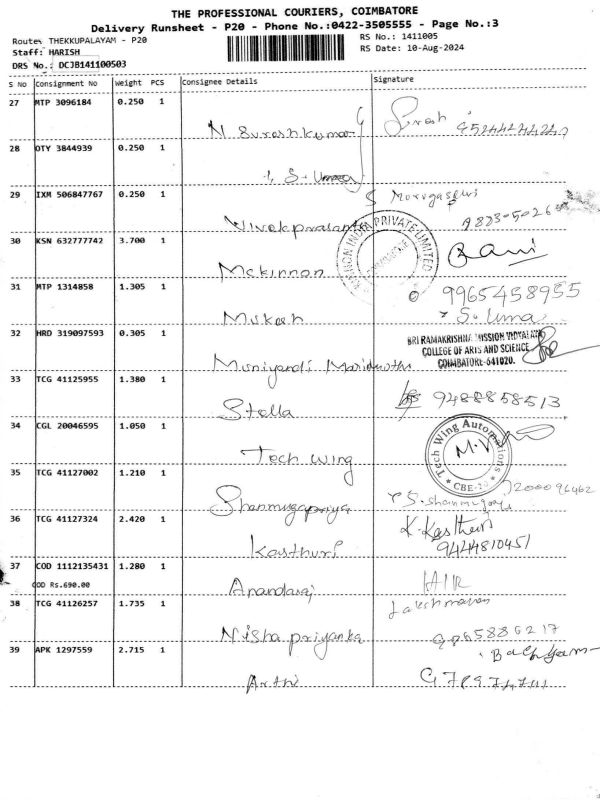 THE PROFESSIONAL COURIERS, COIMBATORE
Delivery Runsheet - P20 - Phone No.:0422-3505555 - Page No.:3
Route: THEKKUPALAYAM - P20
RS No.: 1411005
Staff: HARISH
RS Date: 10-Aug-2024
DRS No.: DCJB141100503
S No Consignment No Weight PCS Consignee Details Signature
27 MTP 3096184 0.250 1
N. Sureshkumar
28 OTY 3844939 0.250 1
S. Uma
29 IXM 506847767 0.250 1
S Murugaselvi
Vivekprasanth
30 KSN 632777742 3.700 1
PRIVATE LIMITED
Rani
Mckinnon
31 MTP 1314858 1.305 1
9965458955
S. Uma
Mukesh
32 HRD 319097593 0.305 1
SRI RAMAKRISHNA MISSION VIDYALAYA
COLLEGE OF ARTS AND SCIENCE
COIMBATORE-641020.
Muniyandi Marimuthu
33 TCG 41125955 1.380 1
9488858513
Stella
34 CGL 20046595 1.050 1
Tech Wing Automations
M.V
CBE-
Tech Wing
35 TCG 41127002 1.210 1
Shanmugapriya
36 TCG 41127324 2.420 1
K. Kasthuri
9444810451
Kasthuri
37 COD 1112135431 1.280 1
COD Rs.690.00
Anandaraj
38 TCG 41126257 1.735 1
Lakshmanan
Nisha priyanka
39 APK 1297559 2.715 1
Arthi